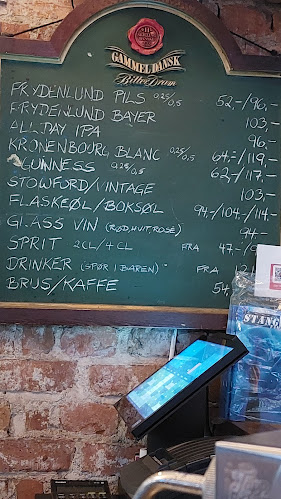 GAMMEL DANSK
Bitter Dram
FRYDENLUND PILS 0,25/0,5 52,-/96,-
FRYDENLUND BAYER 103,-
ALLDAY IPA 96,-
KRONENBOURG BLANC 0,25/0,5 64,-/119,-
GUINNESS 0,25/0,5 62,-/117,-
STOWFORD/VINTAGE 103,-
FLASKEØL/BOKSØL 94,-/104,-/114,-
GLASS VIN (RØD,HVIT,ROSÉ) 94,-
SPRIT 2CL/4CL FRA 47,-/
DRINKER (SPØR I BAREN) FRA
BRUS/KAFFE 54,
STANG